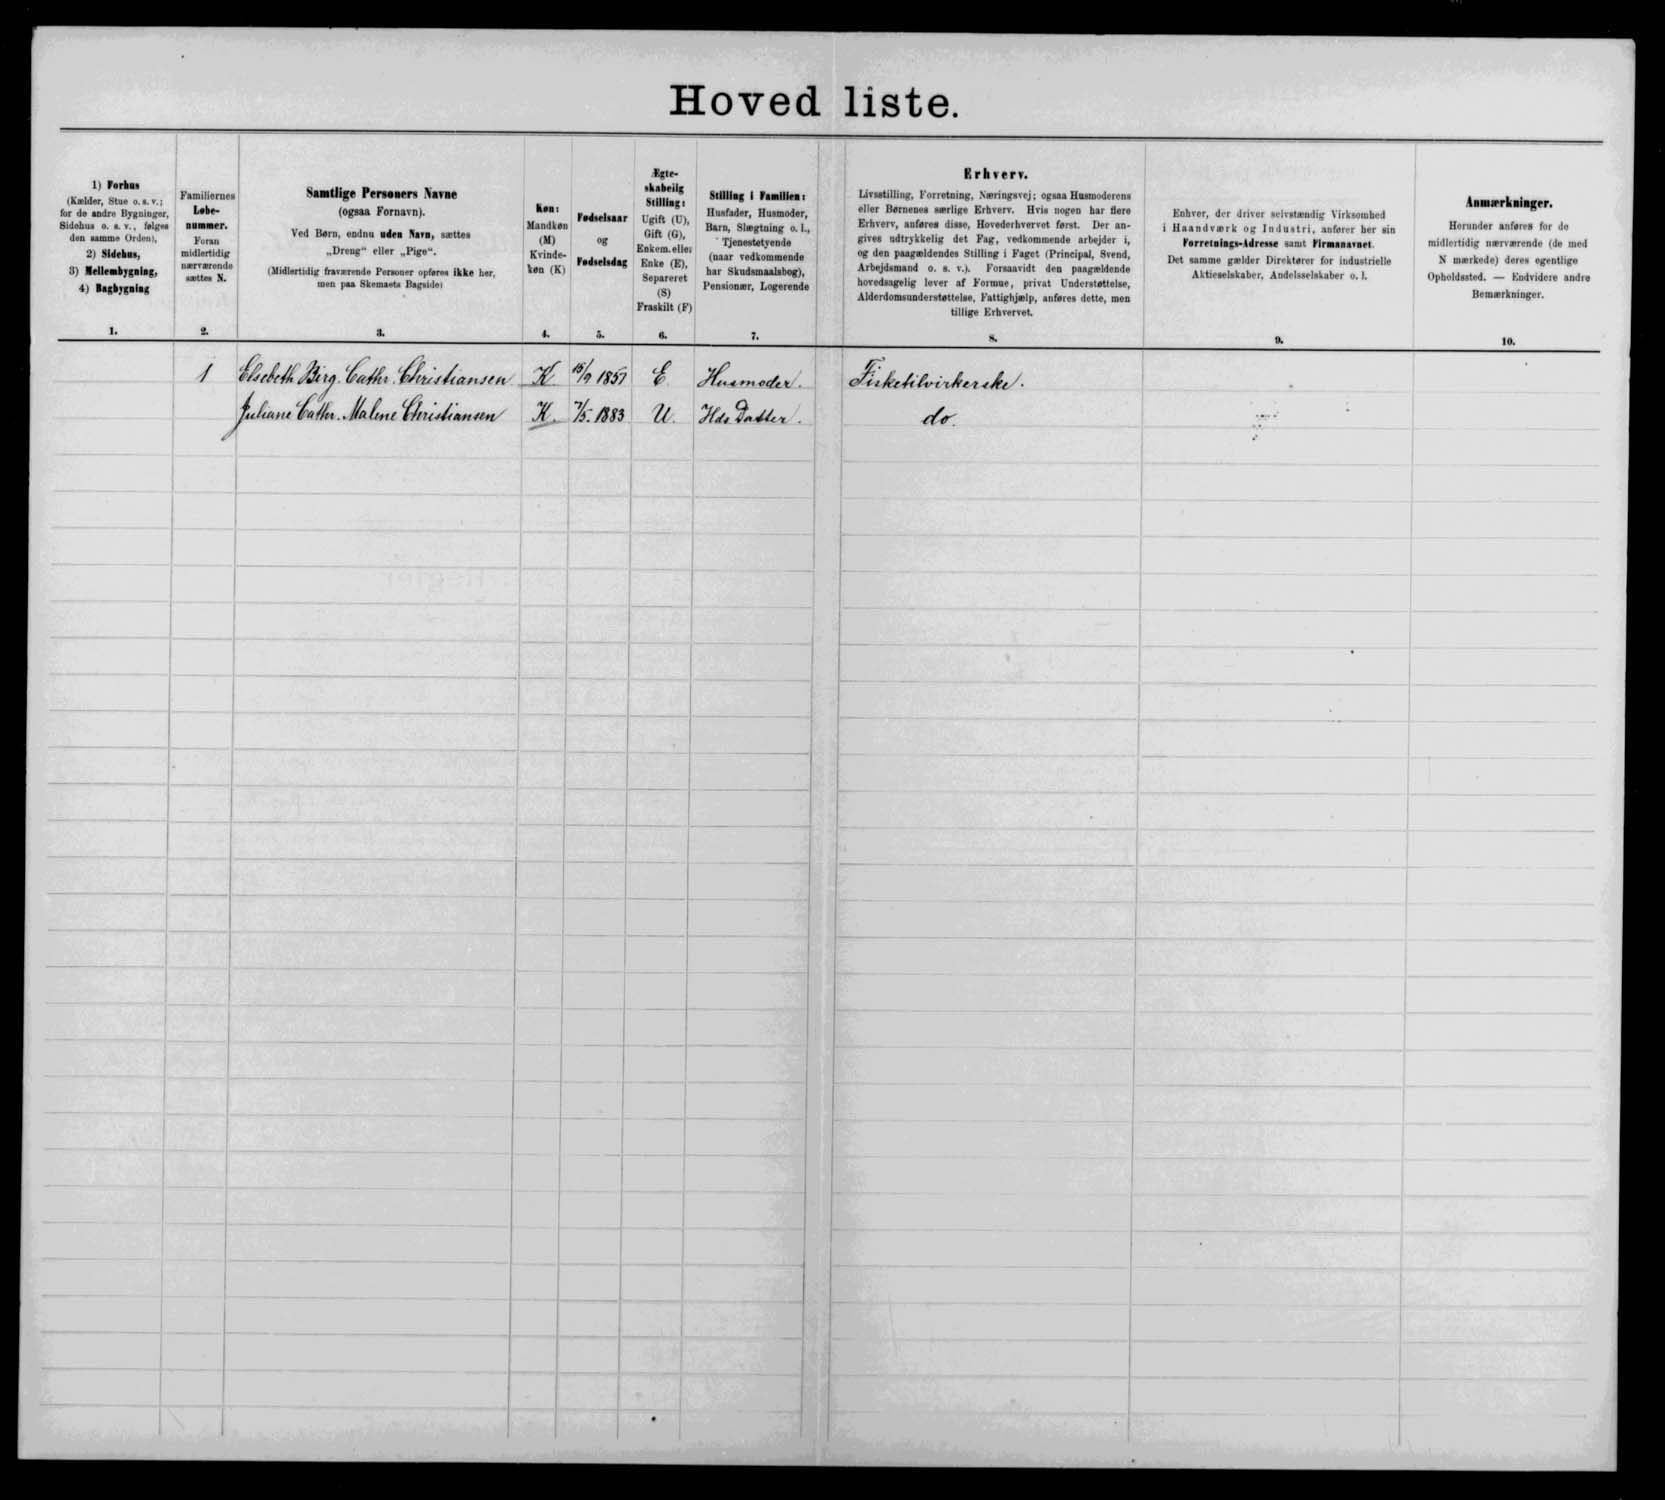 Hovedliste.
1) Forhus
(Kælder, Stue o. s. v.;
for de andre Bygninger,
Sidehus o. s. v., følges
den samme Orden),
2) Sidehus,
3) Mellembygning,
4) Bagbygning
1.
Familiernes
Løbe-
nummer.
Foran
midlertidig
nærværende
sættes N.
2.
Samtlige Personers Navne
(ogsaa Fornavn).
Ved Børn, endnu uden Navn, sættes
„Dreng“ eller „Pige“.
(Midlertidig fraværende Personer opføres ikke her,
men paa Skemaets Bagside)
3.
Køn:
Mandkøn
(M)
Kvinde-
køn (K)
4.
Fødselsaar
og
Fødselsdag
5.
Ægte-
skabelig
Stilling:
Ugift (U),
Gift (G),
Enkem. eller
Enke (E),
Separeret
(S)
Fraskilt (F)
6.
Stilling i Familien:
Husfader, Husmoder,
Barn, Slægtning o. l.,
Tjenestetyende
(naar vedkommende
har Skudsmaalsbog),
Pensionær, Logerende
7.
Erhverv.
Livsstilling, Forretning, Næringsvej; ogsaa Husmoderens
eller Børnenes særlige Erhverv. Hvis nogen har flere
Erhverv, anføres disse, Hovederhvervet først. Der an-
gives udtrykkelig det Fag, vedkommende arbejder i,
og den paagældendes Stilling i Faget (Principal, Svend,
Arbejdsmand o. s. v.). Forsaavidt den paagældende
hovedsagelig lever af Formue, privat Understøttelse,
Alderdomsunderstøttelse, Fattighjælp, anføres dette, men
tillige Erhvervet.
8.
Enhver, der driver selvstændig Virksomhed
i Haandværk og Industri, anfører her sin
Forretnings-Adresse samt Firmanavnet.
Det samme gælder Direktører for industrielle
Aktieselskaber, Andelsselskaber o. l.
9.
Anmærkninger.
Herunder anføres for de
midlertidig nærværende (de med
N mærkede) deres egentlige
Opholdssted. — Endvidere andre
Bemærkninger.
10.
1 Elsebeth Birg. Cathr. Christiansen K 15/9 1857 E. Husmoder. Fisketilvirkerske.
Juliane Cathr. Malene Christiansen K. 7/5. 1883 U. Hds Datter. do.